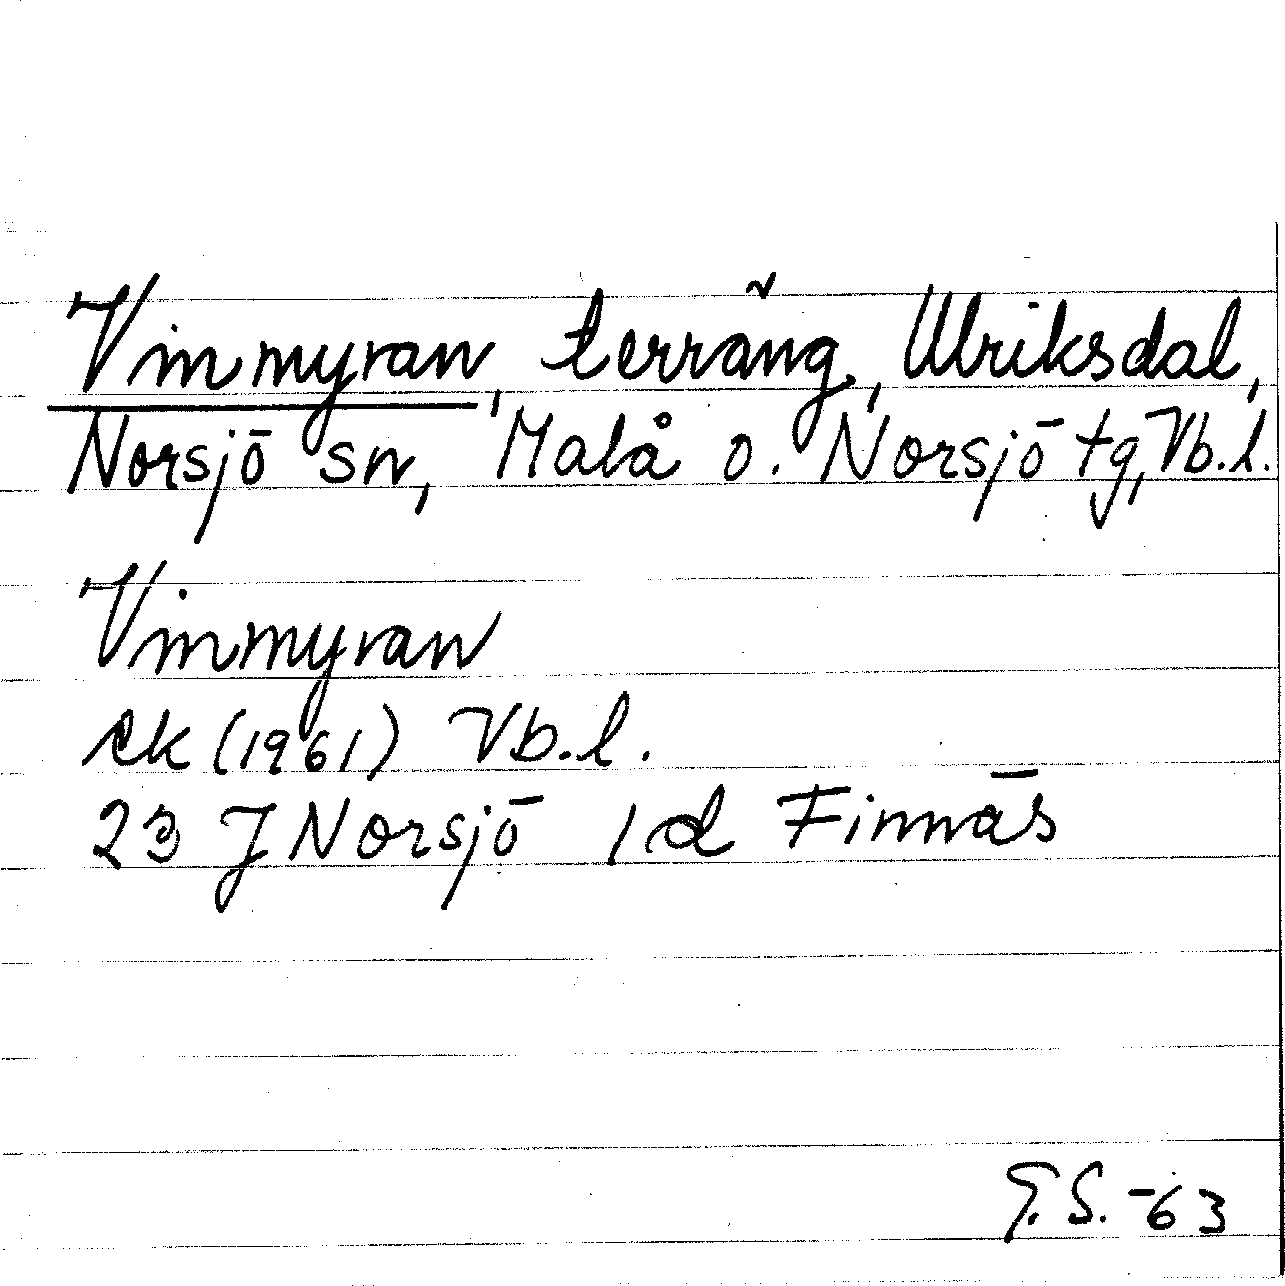 Vinmyran, terräng, Ulriksdal,
Norsjö sn, Malå o. Norsjö tg, Vb.l.
Vinmyran
ek (1961) Vb.l.
23 J Norsjö 1d Finnäs
G.S. -63